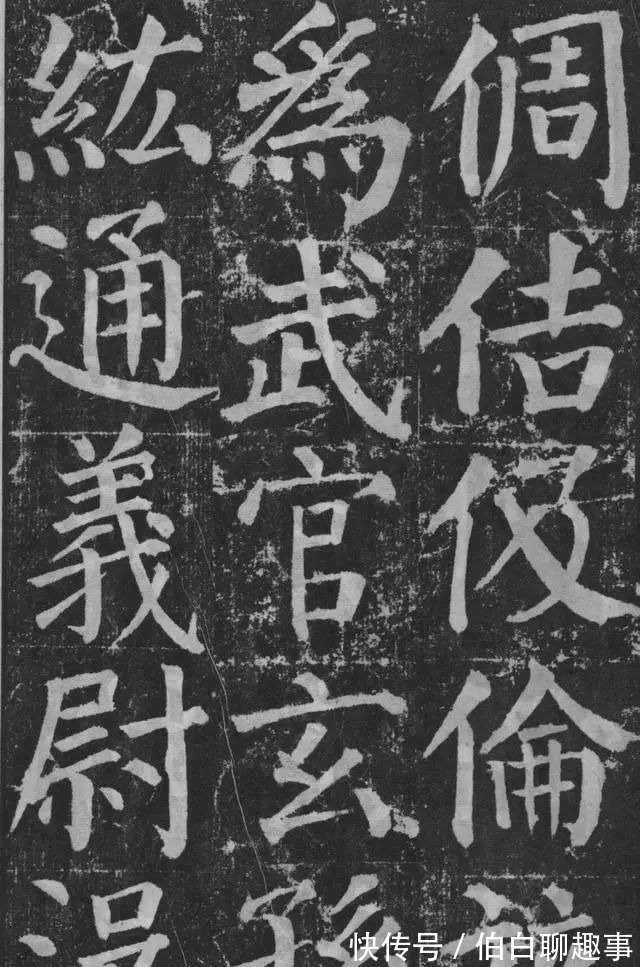 倜佶伋倫
爲武官玄孫
紘通義尉没
快传号 / 伯白聊趣事